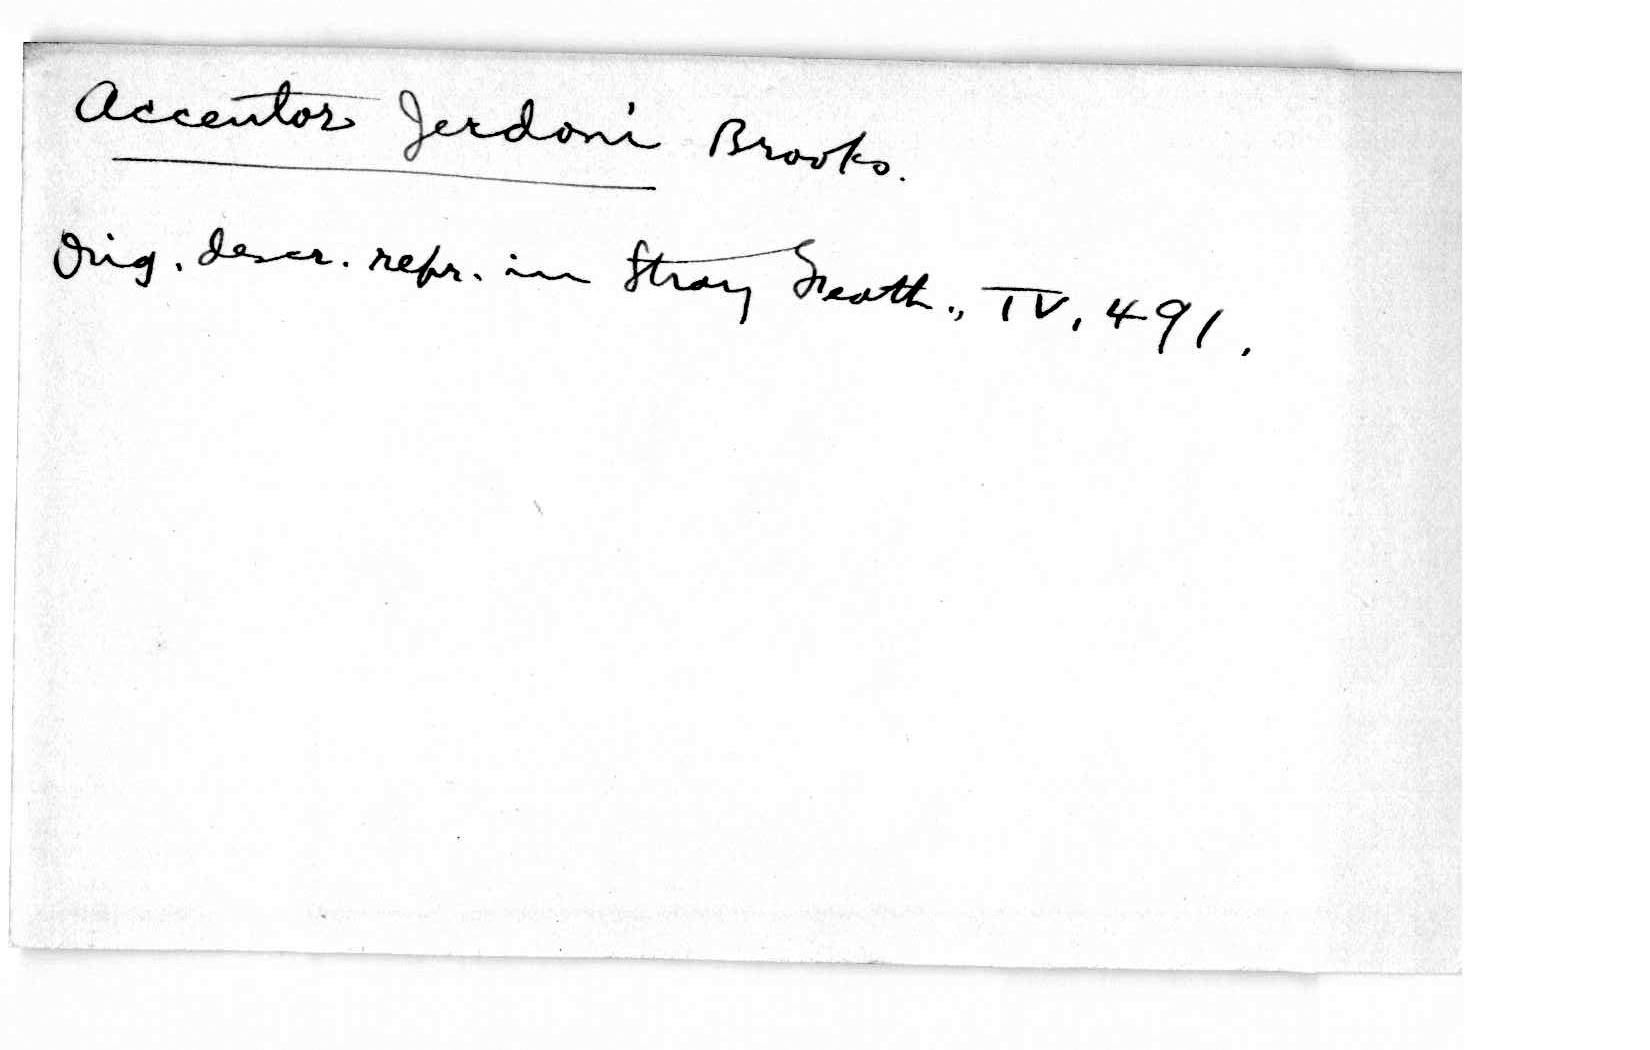 Accentor Jerdoni Brooks.
Orig. descr. repr. in Stray Feath., IV, 491.